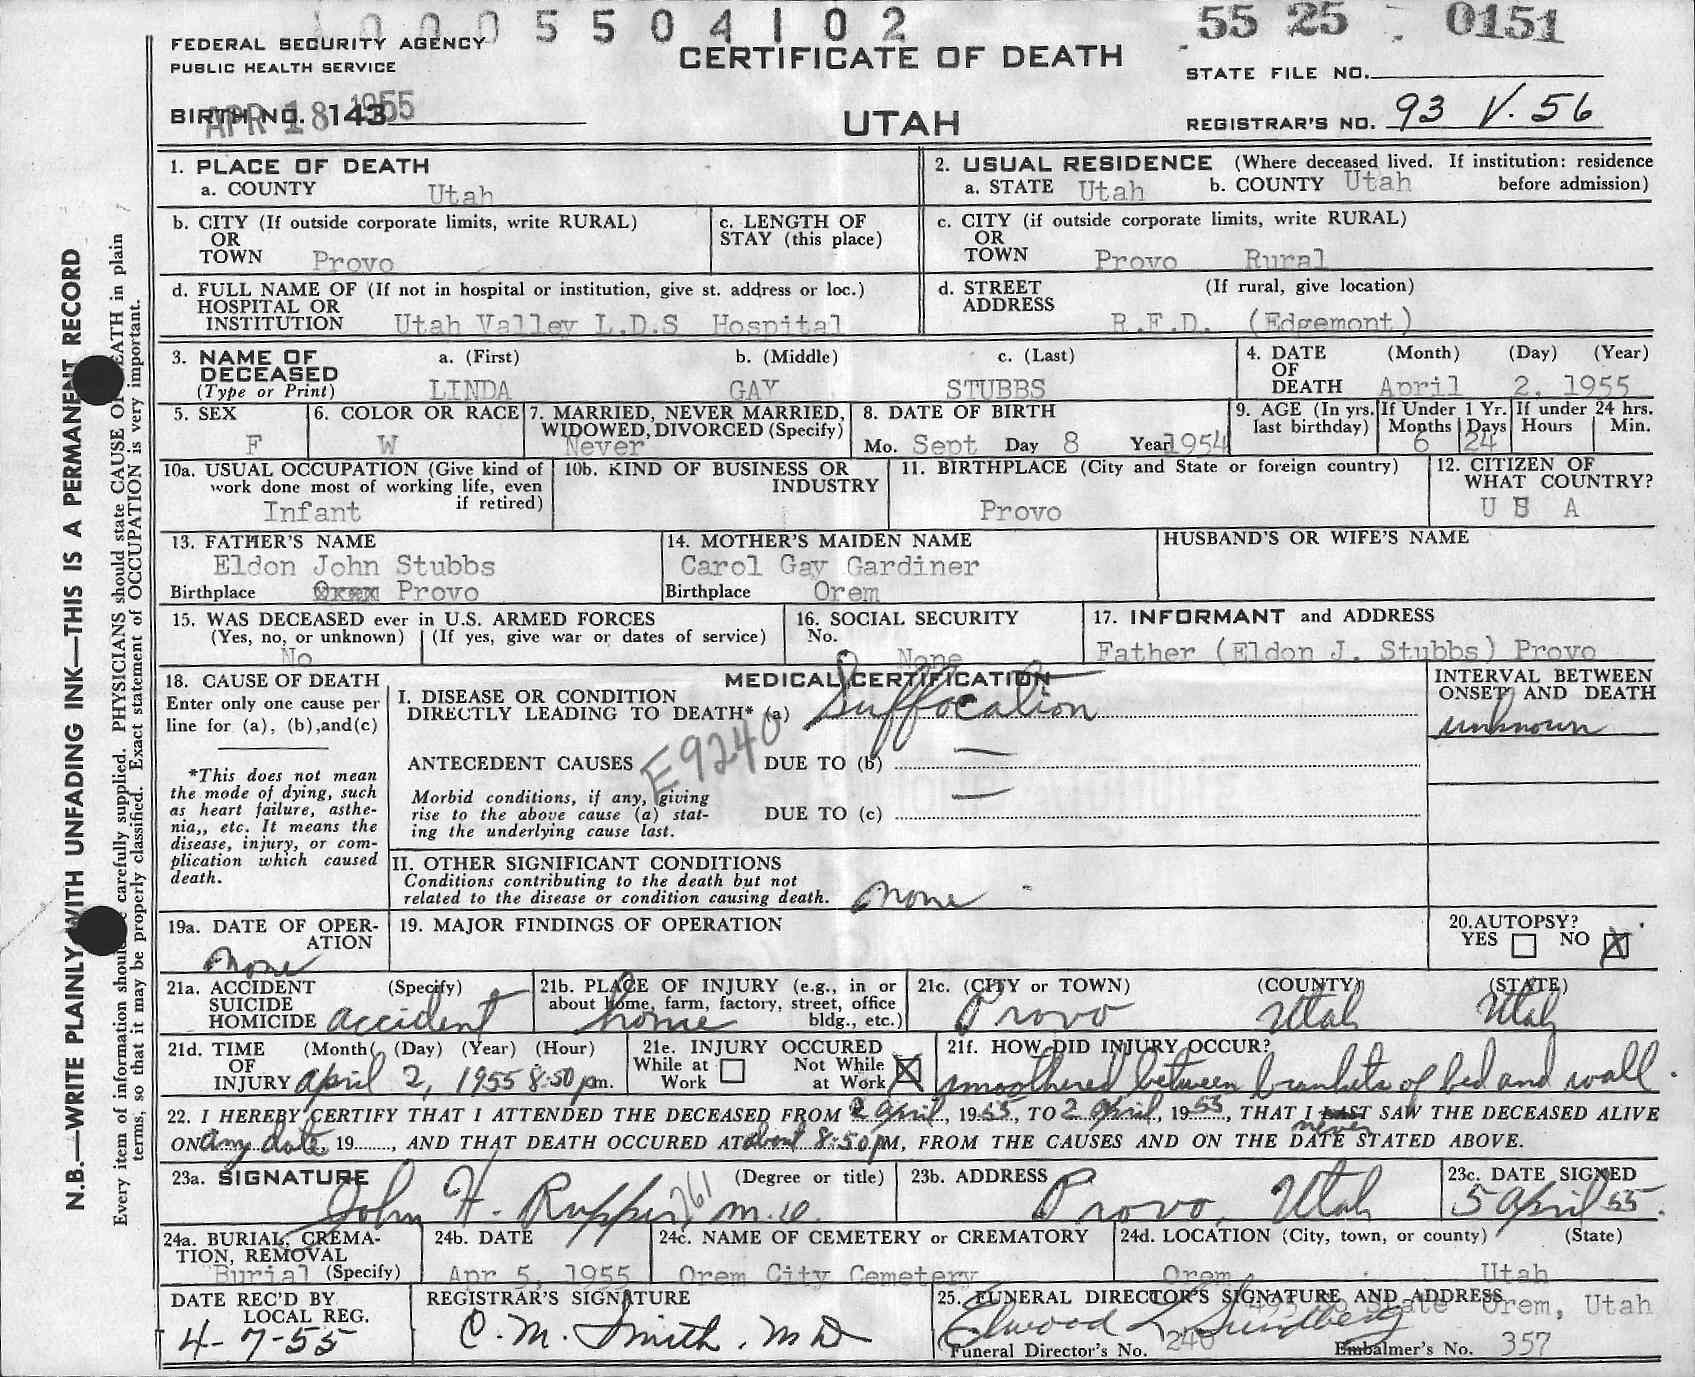 1000 5 5 0 4 1 0 2
55 25 0151
FEDERAL SECURITY AGENCY
PUBLIC HEALTH SERVICE
CERTIFICATE OF DEATH
STATE FILE NO.
BIRTH NO. 143
APR 18 1955
UTAH
REGISTRAR'S NO. 93 V. 56
N.B.—WRITE PLAINLY WITH UNFADING INK—THIS IS A PERMANENT RECORD
Every item of information should carefully supplied. PHYSICIANS should state CAUSE OF DEATH in plain
terms, so that it may be properly classified. Exact statement of OCCUPATION is very important.
1. PLACE OF DEATH
a. COUNTY Utah
2. USUAL RESIDENCE (Where deceased lived. If institution: residence before admission)
a. STATE Utah b. COUNTY Utah
b. CITY (If outside corporate limits, write RURAL)
OR
TOWN Provo
c. LENGTH OF
STAY (this place)
c. CITY (if outside corporate limits, write RURAL)
OR
TOWN Provo Rural
d. FULL NAME OF (If not in hospital or institution, give st. address or loc.)
HOSPITAL OR
INSTITUTION Utah Valley L.D.S Hospital
d. STREET (If rural, give location)
ADDRESS R.F.D. (Edgemont)
3. NAME OF DECEASED
(Type or Print)
a. (First) b. (Middle) c. (Last)
LINDA GAY STUBBS
4. DATE OF DEATH (Month) (Day) (Year)
April 2, 1955
5. SEX
F
6. COLOR OR RACE
W
7. MARRIED, NEVER MARRIED,
WIDOWED, DIVORCED (Specify)
Never
8. DATE OF BIRTH
Mo. Sept Day 8 Year 1954
9. AGE (In yrs. last birthday)
If Under 1 Yr. If under 24 hrs.
Months Days Hours Min.
6 24
10a. USUAL OCCUPATION (Give kind of
work done most of working life, even
if retired)
Infant
10b. KIND OF BUSINESS OR
INDUSTRY
11. BIRTHPLACE (City and State or foreign country)
Provo
12. CITIZEN OF
WHAT COUNTRY?
U S A
13. FATHER'S NAME
Eldon John Stubbs
Birthplace Provo
14. MOTHER'S MAIDEN NAME
Carol Gay Gardiner
Birthplace Orem
HUSBAND'S OR WIFE'S NAME
15. WAS DECEASED ever in U.S. ARMED FORCES
(Yes, no, or unknown) (If yes, give war or dates of service)
No
16. SOCIAL SECURITY
No.
None
17. INFORMANT and ADDRESS
Father (Eldon J. Stubbs) Provo
18. CAUSE OF DEATH
Enter only one cause per
line for (a), (b),and(c)
*This does not mean
the mode of dying, such
as heart failure, asthe-
nia,, etc. It means the
disease, injury, or com-
plication which caused
death.
MEDICAL CERTIFICATION
I. DISEASE OR CONDITION
DIRECTLY LEADING TO DEATH* (a) Suffocation
E9240
ANTECEDENT CAUSES DUE TO (b) —
Morbid conditions, if any, giving
rise to the above cause (a) stat-
ing the underlying cause last.
DUE TO (c) —
INTERVAL BETWEEN
ONSET AND DEATH
unknown
II. OTHER SIGNIFICANT CONDITIONS
Conditions contributing to the death but not
related to the disease or condition causing death. none
19a. DATE OF OPER-
ATION
None
19. MAJOR FINDINGS OF OPERATION
20.AUTOPSY?
YES NO X
21a. ACCIDENT (Specify)
SUICIDE
HOMICIDE accident
21b. PLACE OF INJURY (e.g., in or
about home, farm, factory, street, office
bldg., etc.)
home
21c. (CITY or TOWN) (COUNTY) (STATE)
Provo Utah Utah
21d. TIME (Month) (Day) (Year) (Hour)
OF
INJURY April 2, 1955 8:50 pm.
21e. INJURY OCCURED
While at Work Not While at Work X
21f. HOW DID INJURY OCCUR?
smoothered between brankets of bed and wall.
22. I HEREBY CERTIFY THAT I ATTENDED THE DECEASED FROM 2 April, 1955, TO 2 April, 1955, THAT I LAST never SAW THE DECEASED ALIVE
ON any date 19........, AND THAT DEATH OCCURED AT about 8:50 pM, FROM THE CAUSES AND ON THE DATE STATED ABOVE.
23a. SIGNATURE (Degree or title)
John H. Rupper, M.D.
761
23b. ADDRESS
Provo, Utah
23c. DATE SIGNED
5 April 55.
24a. BURIAL, CREMA-
TION, REMOVAL
Burial (Specify)
24b. DATE
Apr 5, 1955
24c. NAME OF CEMETERY or CREMATORY
Orem City Cemetery
24d. LOCATION (City, town, or county) (State)
Orem Utah
DATE REC'D BY
LOCAL REG.
4-7-55
REGISTRAR'S SIGNATURE
C. M. Smith, MD
25. FUNERAL DIRECTOR'S SIGNATURE AND ADDRESS
State Orem, Utah
Elwood L Sundberg
Funeral Director's No. 240 Embalmer's No. 357